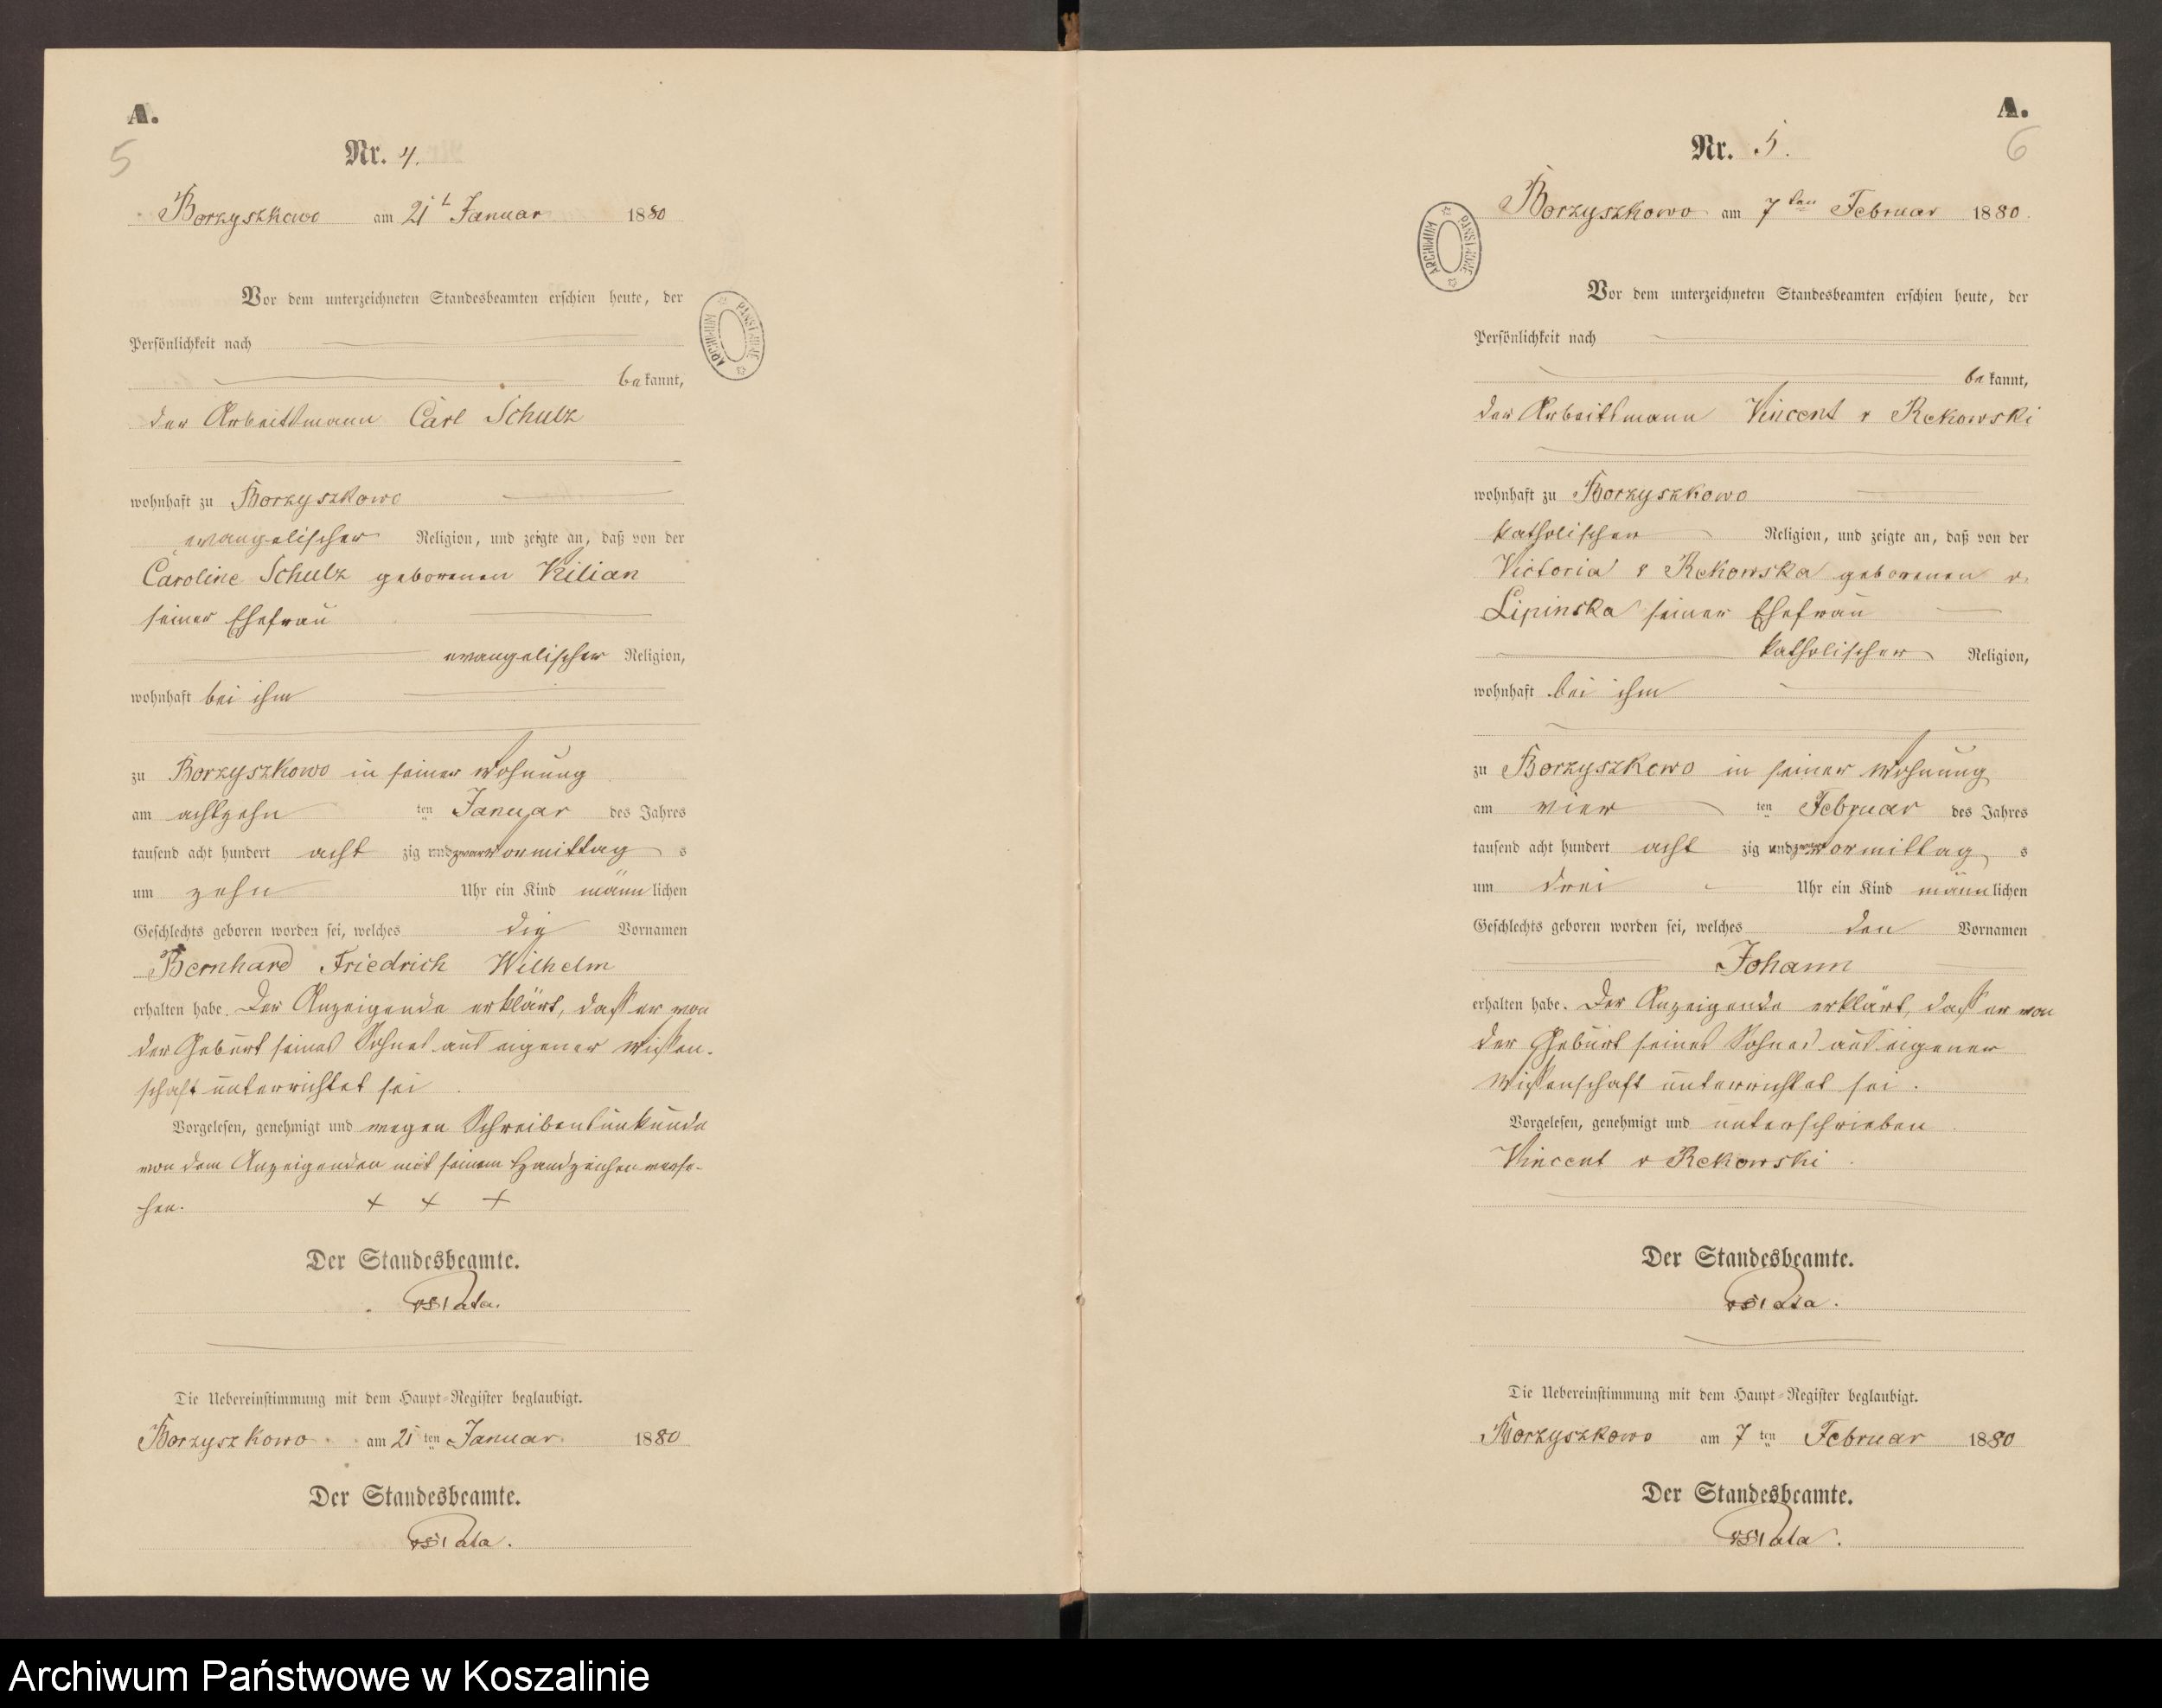 A.
5
Nr. 4.
Borzyszkowo am 21t Januar 1880
Vor dem unterzeichneten Standesbeamten erschien heute, der
Persönlichkeit nach
bekannt,
der Arbeitsmann Carl Schulz
wohnhaft zu Borzyszkowo
evangelischer Religion, und zeigte an, daß von der
Caroline Schulz geborenen Kilian
seiner Ehefrau
evangelischer Religion,
wohnhaft bei ihm
zu Borzyszkowo in seiner Wohnung
am achtzehn ten Januar des Jahres
tausend acht hundert acht zig und zwar Vormittags
um zehn Uhr ein Kind männlichen
Geschlechts geboren worden sei, welches die Vornamen
Bernhard Friedrich Wilhelm
erhalten habe. Der Anzeigende erklärt, daß er von
der Geburt seines Sohnes aus eigener Wissen-
schaft unterrichtet sei
Vorgelesen, genehmigt und wegen Schreibensunkunde
von dem Anzeigenden mit seinem Handzeichen verse-
hen. + + +
Der Standesbeamte.
Die Uebereinstimmung mit dem Haupt-Register beglaubigt.
Borzyszkowo am 21 ten Januar 1880
Der Standesbeamte.
A.
6
Nr. 5.
Borzyszkowo am 7ten Februar 1880.
Vor dem unterzeichneten Standesbeamten erschien heute, der
Persönlichkeit nach
bekannt,
der Arbeitsmann Vincent v Rekowski
wohnhaft zu Borzyszkowo
katholischer Religion, und zeigte an, daß von der
Victoria v Rekowska geborenen v.
Lipinska seiner Ehefrau
katholischer Religion,
wohnhaft bei ihm
zu Borzyszkowo in seiner Wohnung
am vier ten Februar des Jahres
tausend acht hundert acht zig und zwar Vormittags
um drei Uhr ein Kind männlichen
Geschlechts geboren worden sei, welches den Vornamen
Johann
erhalten habe. Der Anzeigende erklärt, daß er von
der Geburt seines Sohnes aus eigener
Wissenschaft unterrichtet sei.
Vorgelesen, genehmigt und unterschrieben
Vincent v Rekowski
Der Standesbeamte.
Die Uebereinstimmung mit dem Haupt-Register beglaubigt.
Borzyszkowo am 7 ten Februar 1880
Der Standesbeamte.
ARCHIWUM PAŃSTWOWE
ARCHIWUM PAŃSTWOWE
Archiwum Państwowe w Koszalinie